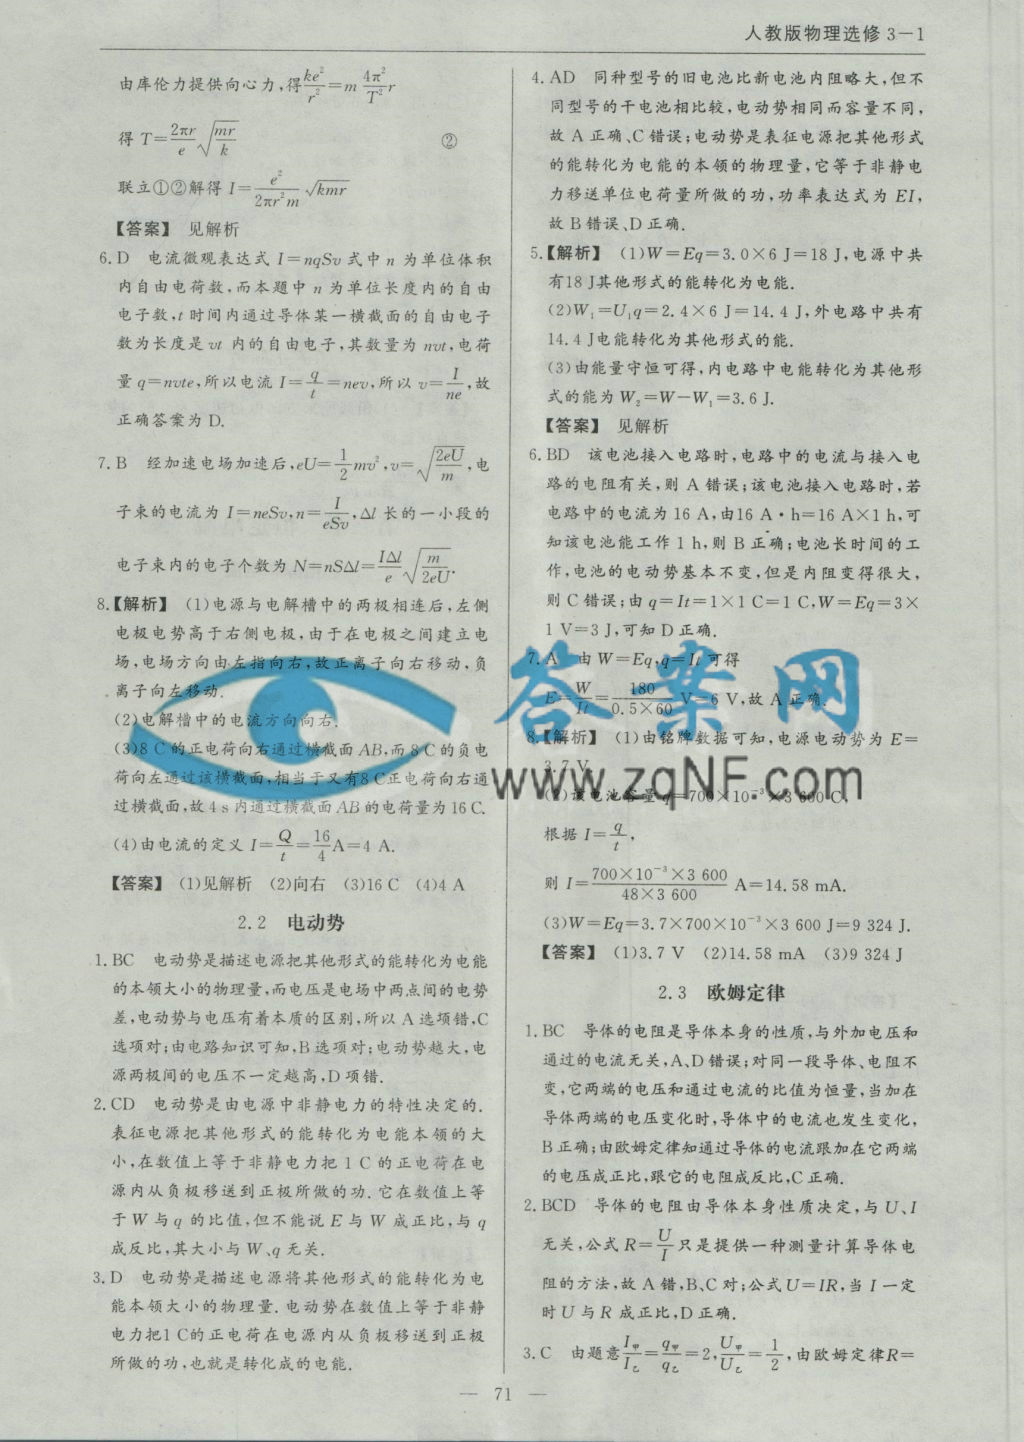 人教版物理选修3—1
由库伦力提供向心力,得ke²/r²=m 4π²/T² r
得 T=2πr/e √(mr/k) ②
联立①②解得 I=e²/(2πr²m) √(kmr)
【答案】 见解析
6. D 电流微观表达式 I=nqSv 式中 n 为单位体积
内自由电荷数,而本题中 n 为单位长度内的自由
电子数,t 时间内通过导体某一横截面的自由电子
数为长度是 vt 内的自由电子,其数量为 nvt,电荷
量 q=nvte,所以电流 I=q/t=nev,所以 v=I/ne,故
正确答案为 D.
7. B 经加速电场加速后,eU=1/2 mv²,v=√(2eU/m),电
子束的电流为 I=neSv,n=I/eSv,Δl 长的一小段的
电子束内的电子个数为 N=nSΔl=IΔl/e √(m/2eU).
8.【解析】 (1)电源与电解槽中的两极相连后,左侧
电极电势高于右侧电极,由于在电极之间建立电
场,电场方向由左指向右,故正离子向右移动,负
离子向左移动.
(2)电解槽中的电流方向向右.
(3)8 C的正电荷向右通过横截面 AB,而 8 C的负电
荷向左通过该横截面,相当于又有8 C正电荷向右通
过横截面,故 4 s 内通过横截面 AB 的电荷量为 16 C.
(4)由电流的定义 I=Q/t=16/4 A=4 A.
【答案】 (1)见解析 (2)向右 (3)16 C (4)4 A
2.2 电动势
1. BC 电动势是描述电源把其他形式的能转化为电能
的本领大小的物理量,而电压是电场中两点间的电势
差,电动势与电压有着本质的区别,所以 A 选项错,C
选项对;由电路知识可知,B 选项对;电动势越大,电
源两极间的电压不一定越高,D 项错.
2. CD 电动势是由电源中非静电力的特性决定的.
表征电源把其他形式的能转化为电能本领的大
小,在数值上等于非静电力把 1 C 的正电荷在电
源内从负极移送到正极所做的功. 它在数值上等
于 W 与 q 的比值,但不能说 E 与 W 成正比,与 q
成反比,其大小与 W、q 无关.
3. D 电动势是描述电源将其他形式的能转化为电
能本领大小的物理量. 电动势在数值上等于非静
电力把1 C的正电荷在电源内从负极移送到正极
所做的功,也就是转化成的电能.
4. AD 同种型号的旧电池比新电池内阻略大,但不
同型号的干电池相比较,电动势相同而容量不同,
故 A 正确、C 错误;电动势是表征电源把其他形式
的能转化为电能的本领的物理量,它等于非静电
力移送单位电荷量所做的功,功率表达式为 EI,
故 B 错误、D 正确.
5.【解析】 (1)W=Eq=3.0×6 J=18 J,电源中共
有18 J其他形式的能转化为电能.
(2)W₁=U₁q=2.4×6 J=14.4 J,外电路中共有
14.4 J电能转化为其他形式的能.
(3)由能量守恒可得,内电路中电能转化为其他形
式的能为 W₂=W−W₁=3.6 J.
【答案】 见解析
6. BD 该电池接入电路时,电路中的电流与接入电
路的电阻有关,则 A 错误;该电池接入电路时,若
电路中的电流为 16 A,由16 A·h=16 A×1 h,可
知该电池能工作 1 h,则 B 正确;电池长时间的工
作,电池的电动势基本不变,但是内阻变得很大,
则 C 错误;由 q=It=1×1 C=1 C,W=Eq=3×
1 V=3 J,可知 D 正确.
7. A 由 W=Eq,q=It 可得
E=W/It=180/(0.5×60) V=6 V,故 A 正确.
8.【解析】 (1)由铭牌数据可知,电源电动势为 E=
3.7 V.
(2)该电池容量 q=700×10⁻³×3 600 C,
根据 I=q/t,
则 I=(700×10⁻³×3 600)/(48×3 600) A=14.58 mA.
(3)W=Eq=3.7×700×10⁻³×3 600 J=9 324 J.
【答案】 (1)3.7 V (2)14.58 mA (3)9 324 J
2.3 欧姆定律
1. BC 导体的电阻是导体本身的性质,与外加电压和
通过的电流无关,A、D 错误;对同一段导体、电阻不
变,它两端的电压和通过电流的比值为恒量,当加在
导体两端的电压变化时,导体中的电流也发生变化,
B 正确;由欧姆定律知通过导体的电流跟加在它两端
的电压成正比,跟它的电阻成反比,C 正确.
2. BCD 导体的电阻由导体本身性质决定,与 U、I
无关,公式 R=U/I 只是提供一种测量计算导体电
阻的方法,故 A 错,B、C 对;公式 U=IR,当 I 一定
时 U 与 R 成正比,D 正确.
3. C 由题意 I甲/I乙=q甲/q乙=2,U甲/U乙=1/2,由欧姆定律 R=
— 71 —
答案网
www.zqNF.com